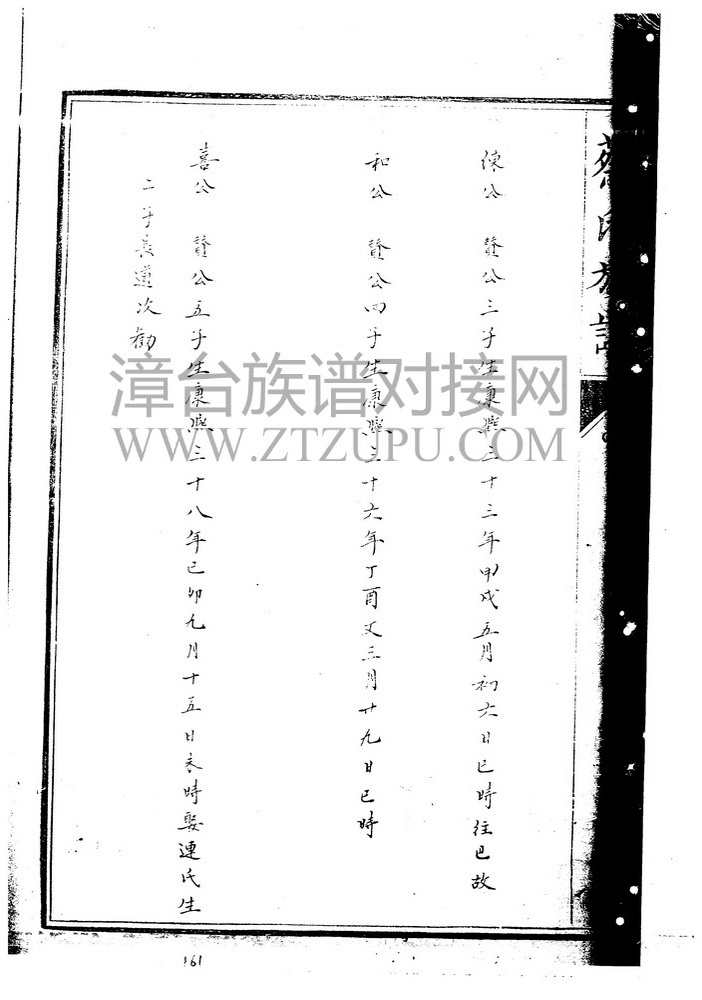 蔡氏族譜
倲公 贊公三子生康熙三十三年甲戌五月初六日巳時往巴故
和公 贊公四子生康熙三十六年丁酉丈三月廿九日巳時
喜公 贊公五子生康熙三十八年己卯九月十五日未時娶連氏生
二子長遵次勸
漳台族谱对接网
WWW.ZTZUPU.COM
161